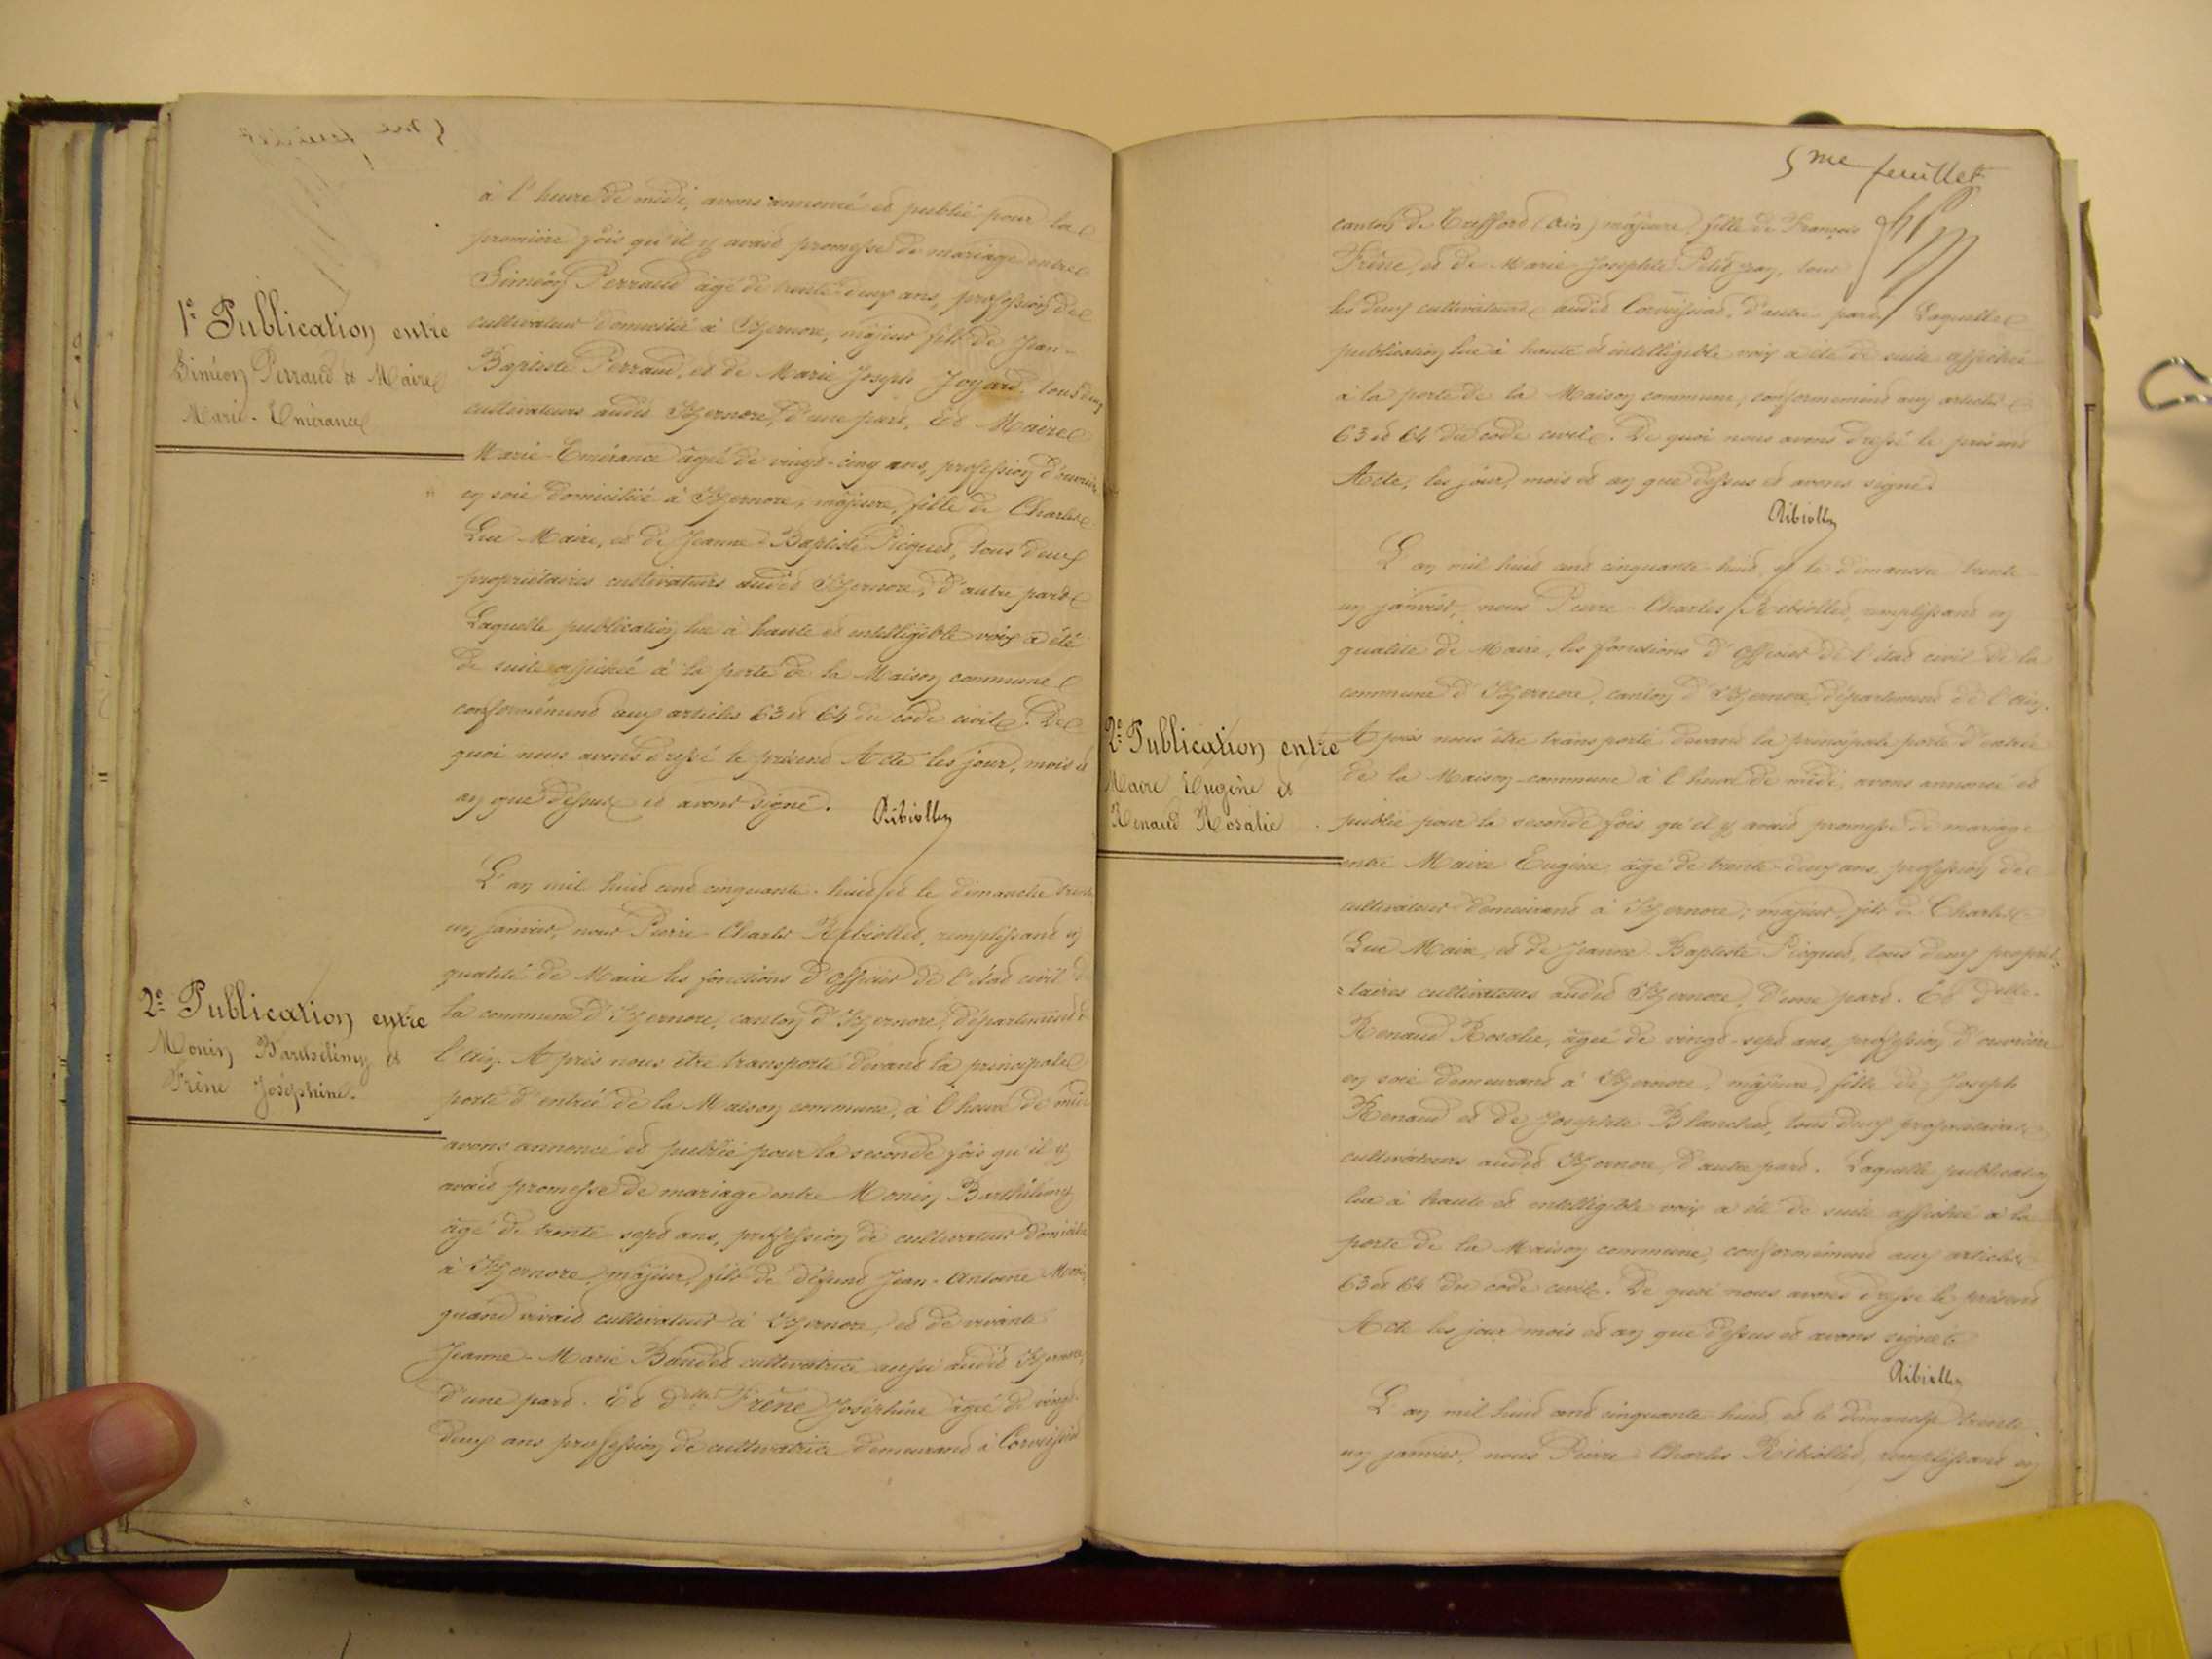 à l'heure de midi, avons annoncé et publié pour la
première fois qu'il y avait promesse de mariage entre
Siméon Perraud âgé de trente deux ans, profession de
1e Publication entre
Siméon Perraud et Maire
Marie-Emérance
cultivateur domicilié à Izernore, majeur fils de Jean-
Baptiste Perraud, et de Marie Joseph Joyard, tous deux
cultivateurs audit Izernore, d'une part, Et Maire
Marie-Emérance âgée de vingt-cinq ans, profession d'ouvrière
en soie domiciliée à Izernore, majeure, fille de Charles
Luc Maire, et de Jeanne-Baptiste Picquet, tous deux
propriétaires cultivateurs audit Izernore, d'autre part
Laquelle publication lue à haute et intelligible voix a été
de suite affichée à la porte de la Maison commune
conformément aux articles 63 et 64 du code civil. De
quoi nous avons dressé le présent Acte les jour, mois et
an que dessus et avons signé.
Ribiollet
L'an mil huit cent cinquante-huit et le dimanche trente
un janvier, nous Pierre-Charles Ribiollet, remplissant en
qualité de Maire les fonctions d'officier de l'état civil de
2e Publication entre
Monin Barthélemy et
Frène Joséphine.
la commune d'Izernore, canton d'Izernore, département de
l'Ain. Après nous être transporté devant la principale
porte d'entrée de la Maison commune, à l'heure de midi
avons annoncé et publié pour la seconde fois qu'il y
avait promesse de mariage entre Monin Barthélemy
âgé de trente sept ans, profession de cultivateur domicilié
à Izernore, majeur, fils de défunt Jean-Antoine Monin,
quand vivait cultivateur à Izernore, et de vivante
Jeanne-Marie Baudet cultivatrice aussi audit Izernore,
d'une part. Et dlle Frène Joséphine âgée de vingt
deux ans profession de cultivatrice demeurant à Corveissiat
5me feuillet
canton de Treffort (Ain) majeure, fille de François
Frène, et de Marie Josephte Petitjean, tous
les deux cultivateurs audit Corveissiat, d'autre part. Laquelle
publication lue à haute et intelligible voix a été de suite affichée
à la porte de la Maison commune, conformément aux articles
63 et 64 du code civil. De quoi nous avons dressé le présent
Acte, les jour, mois et an que dessus et avons signé.
Ribiollet
L'an mil huit cent cinquante-huit, et le dimanche trente
un janvier, nous Pierre-Charles Ribiollet, remplissant en
qualité de Maire, les fonctions d'officier de l'état civil de la
commune d'Izernore, canton d'Izernore, département de l'Ain.
2e Publication entre
Maire Eugène et
Renaud Rosalie.
Après nous être transporté devant la principale porte d'entrée
de la Maison commune à l'heure de midi, avons annoncé et
publié pour la seconde fois qu'il y avait promesse de mariage
entre Maire Eugène, âgé de trente-deux ans, profession de
cultivateur demeurant à Izernore, majeur, fils de Charles
Luc Maire, et de Jeanne Baptiste Picquet, tous deux proprié=
=taires cultivateurs audit Izernore, d'une part. Et Delle
Renaud Rosalie, âgée de vingt-sept ans, profession d'ouvrière
en soie demeurant à Izernore, majeure, fille de Joseph
Renaud et de Josephte Blanchet, tous deux propriétaires
cultivateurs audit Izernore, d'autre part. Laquelle publication
lue à haute et intelligible voix a été de suite affichée à la
porte de la Maison commune, conformément aux articles
63 et 64 du code civil. De quoi nous avons dressé le présent
Acte les jour mois et an que dessus et avons signé.
Ribiollet
L'an mil huit cent cinquante-huit, et le dimanche trente
un janvier, nous Pierre-Charles Ribiollet, remplissant en